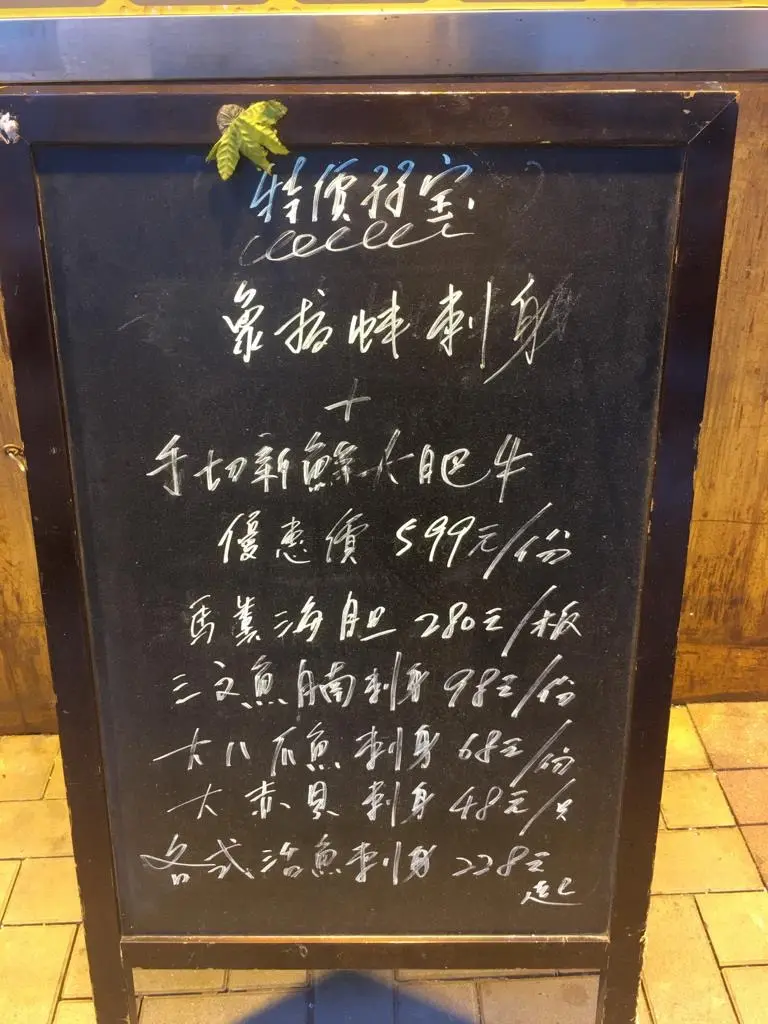 特價刺身
象拔蚌刺身
+
手切新鮮大肥牛
優惠價 599元/份
馬糞海胆 280元/板
三文魚腩刺身 98元/份
大八爪魚刺身 68元/份
大赤貝刺身 48元/只
各式活魚刺身 228元
起